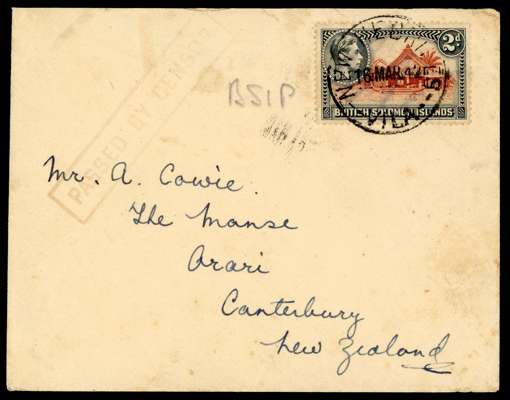 2d
NEW HEBRIDES
16 MAR 42
VILA
BRITISH SOLOMON ISLANDS
BSIP
PASSED BY
Mr. A. Cowie.
The Manse
Orari
Canterbury
New Zealand